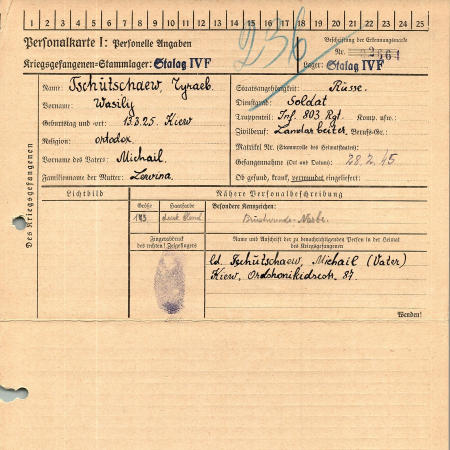 1 2 3 4 5 6 7 8 9 10 11 12 13 14 15 16 17 18 19 20 21 22 23 24 25
Personalkarte I: Personelle Angaben
Kriegsgefangenen-Stammlager: Stalag IV F
236
Beschriftung der Erkennungsmarke
Nr. 22664
Lager: Stalag IV F
Des Kriegsgefangenen
Name: Tschütschaew, Tyraeb.
Vorname: Wasily
Geburtstag und -ort: 13.8.25. Kiew
Religion: ortodox
Vorname des Vaters: Michail,
Familienname der Mutter: Lewina.
Staatsangehörigkeit: Russe.
Dienstgrad: Soldat
Truppenteil: Inf. 803 Rgt. Komp. usw.:
Zivilberuf: Landarbeiter. Berufs-Gr.:
Matrikel Nr. (Stammrolle des Heimatstaates):
Gefangennahme (Ort und Datum): 28.2.45
Ob gesund, krank, verwundet eingeliefert:
Lichtbild
Nähere Personalbeschreibung
Größe
Haarfarbe
Besondere Kennzeichen:
173
dunk. blond
Narbe.
Fingerabdruck
des rechten! Zeigefingers
Name und Anschrift der zu benachrichtigenden Person in der Heimat
des Kriegsgefangenen
Tschütschaew, Michail (Vater)
Kiew, 87.
Wenden!